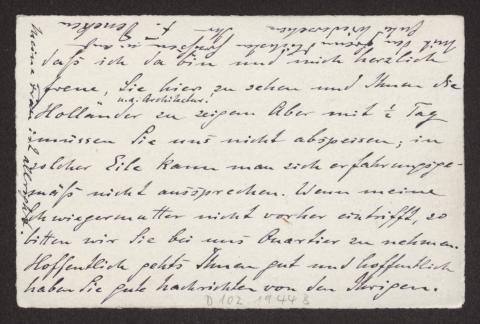 daß ich da bin und mich herzlich
freue, Sie hier zu sehen und Ihnen die
u. a. Architektur.
Holländer zu zeigen. Aber mit ½ Tag
müssen Sie uns nicht abspeisen; in
solcher Eile kann man sich erfahrungsge-
mäß nicht aussprechen. Wenn meine
Schwiegermutter nicht vorher eintrifft, so
bitten wir Sie bei uns Quartier zu nehmen.
Hoffentlich gehts Ihnen gut und hoffentlich
haben Sie gute Nachrichten von den Ihrigen.
Mit den Grüßen u. auf
gutes Wiedersehen Ihr
meine Frau ist
D 102. 1944 8